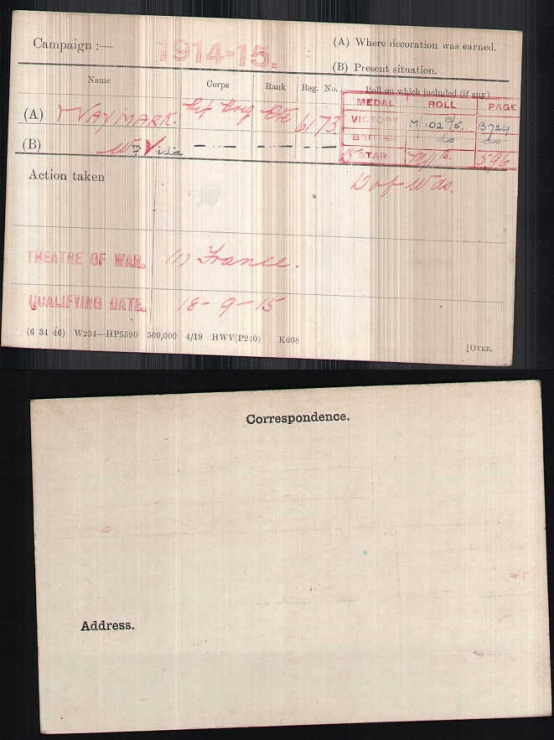 Campaign :— 1914-15.
(A) Where decoration was earned.
(B) Present situation.
Name Corps Rank Reg. No. Roll on which included (if any)
MEDAL ROLL PAGE
(A) WAYMARK. Rif Brig Pte 6173
VICTORY do 3724
BRITISH do do
(B) Wm
15 STAR 596
Action taken D of Wds.
THEATRE OF WAR. (1) France.
QUALIFYING DATE. 18-9-15
(6 34 46) W234—HP5590 500,000 4/19 HWV(P240) K608
[OVER.
Correspondence.
Address.